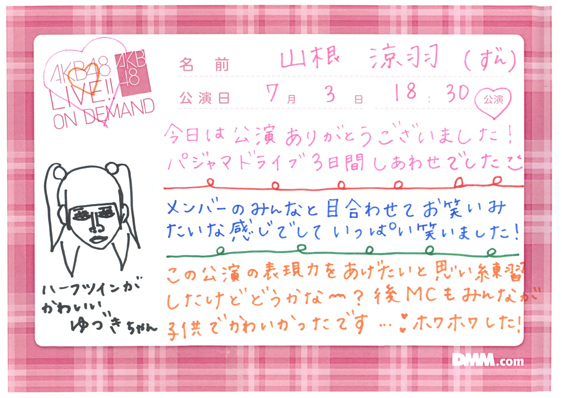 AKB48
LIVE!!
ON DEMAND
AKB
48
名前 山根 涼羽 (ずん)
公演日 7月 3日 18:30 公演
今日は公演ありがとうございました!
パジャマドライブ3日間しあわせでした
メンバーのみんなと目合わせてお笑いみ
たいな感じでしていっぱい笑いました!
この公演の表現力をあげたいと思い練習
したけどどうかな〜?後MCもみんなが
子供でかわいかったです…ホワホワした!
ハーフツインが
かわいい
ゆづきちゃん
DMM.com